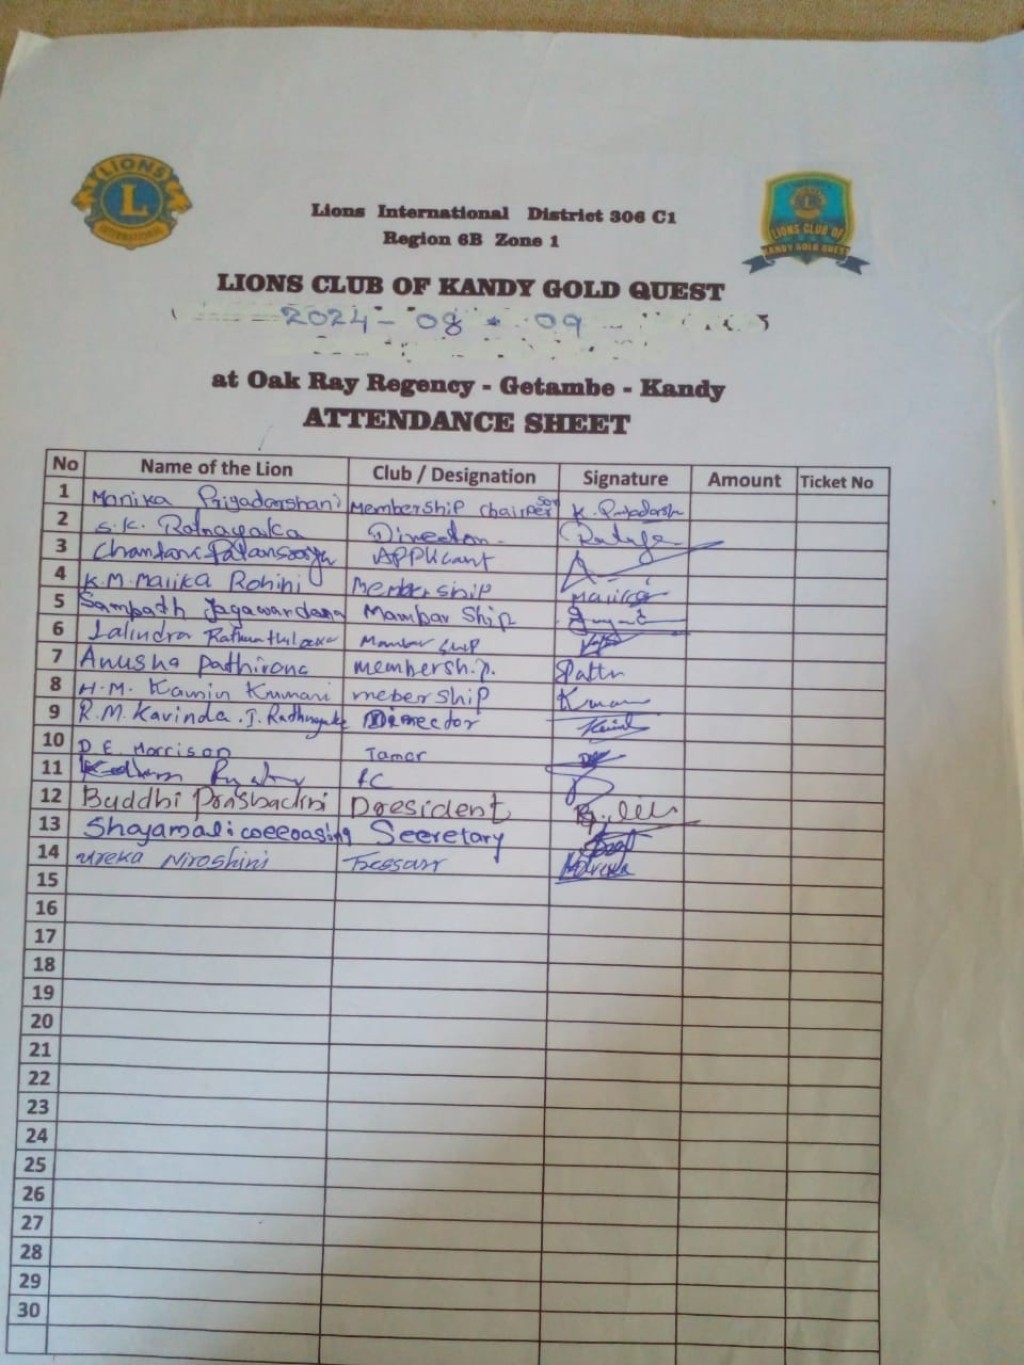 LIONS
L
INTERNATIONAL
LIONS CLUB OF
KANDY GOLD QUEST
Lions International District 306 C1
Region 6B Zone 1
LIONS CLUB OF KANDY GOLD QUEST
2024 - 08 - 09
at Oak Ray Regency - Getambe - Kandy
ATTENDANCE SHEET
No Name of the Lion Club / Designation Signature Amount Ticket No
1 Manika Priyadarshani Membership Chairperson K. Priyadarsh
2 S.K. Ratnayaka Director
3 APPlicant
4 K.M. Malika Rohini Membership
5 Sampath Jagawardana Mambar Ship
6 Lalindra Mambar Ship
7 Anusha Pathirana membership.
8 H.M. Kamin Kumari mebership
9 R.M. Kavinda .J. Rathnayake Director
10 D.E. Morrison Tamer
11
12 Buddhi President
13 Shayamali Seeretary
14 Ureka Niroshini
15
16
17
18
19
20
21
22
23
24
25
26
27
28
29
30